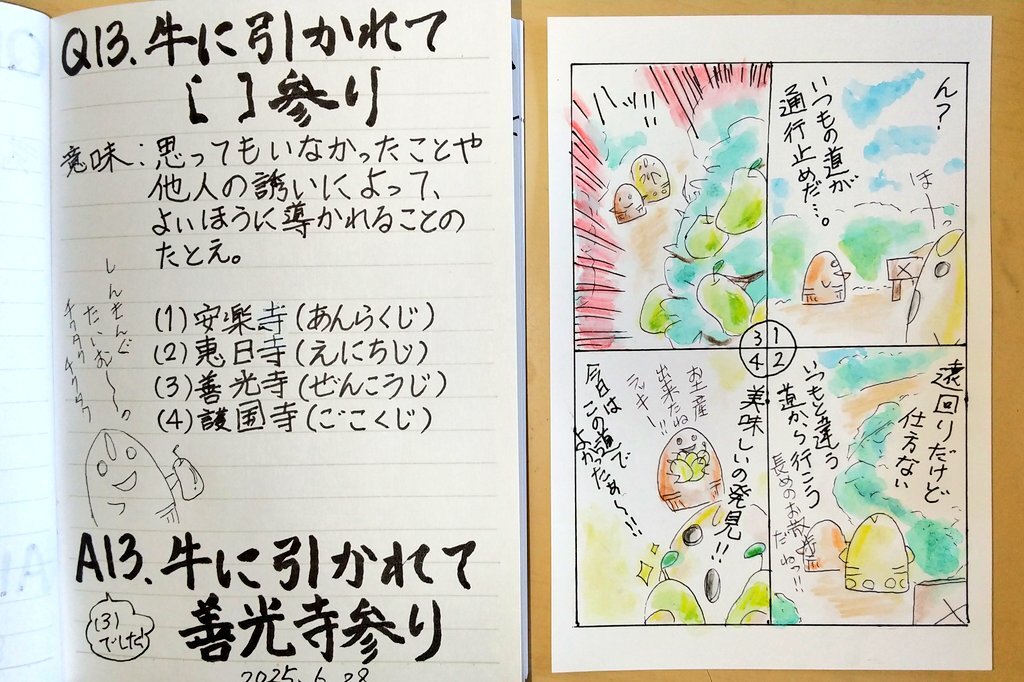 Q13.牛に引かれて
[ ]参り
意味:思ってもいなかったことや
他人の誘いによって、
よいほうに導かれることの
たとえ。
しんきんぐ
たいむ〜。
チクタク
チクタク
(1)安楽寺(あんらくじ)
(2)恵日寺(えにちじ)
(3)善光寺(ぜんこうじ)
(4)護国寺(ごこくじ)
A13.牛に引かれて
善光寺参り
(3)
でした
2025.6.28
ん?
いつもの道が
通行止めだ…。
ほ
遠回りだけど
仕方ない
いつもと違う
道から行こう
長めのお散歩
だねっ!!
ハッ!!
美味しいの発見!!
お土産
出来たね
ラッキー!!
今日は
この道で
よかったぁ〜!!
3 1
4 2